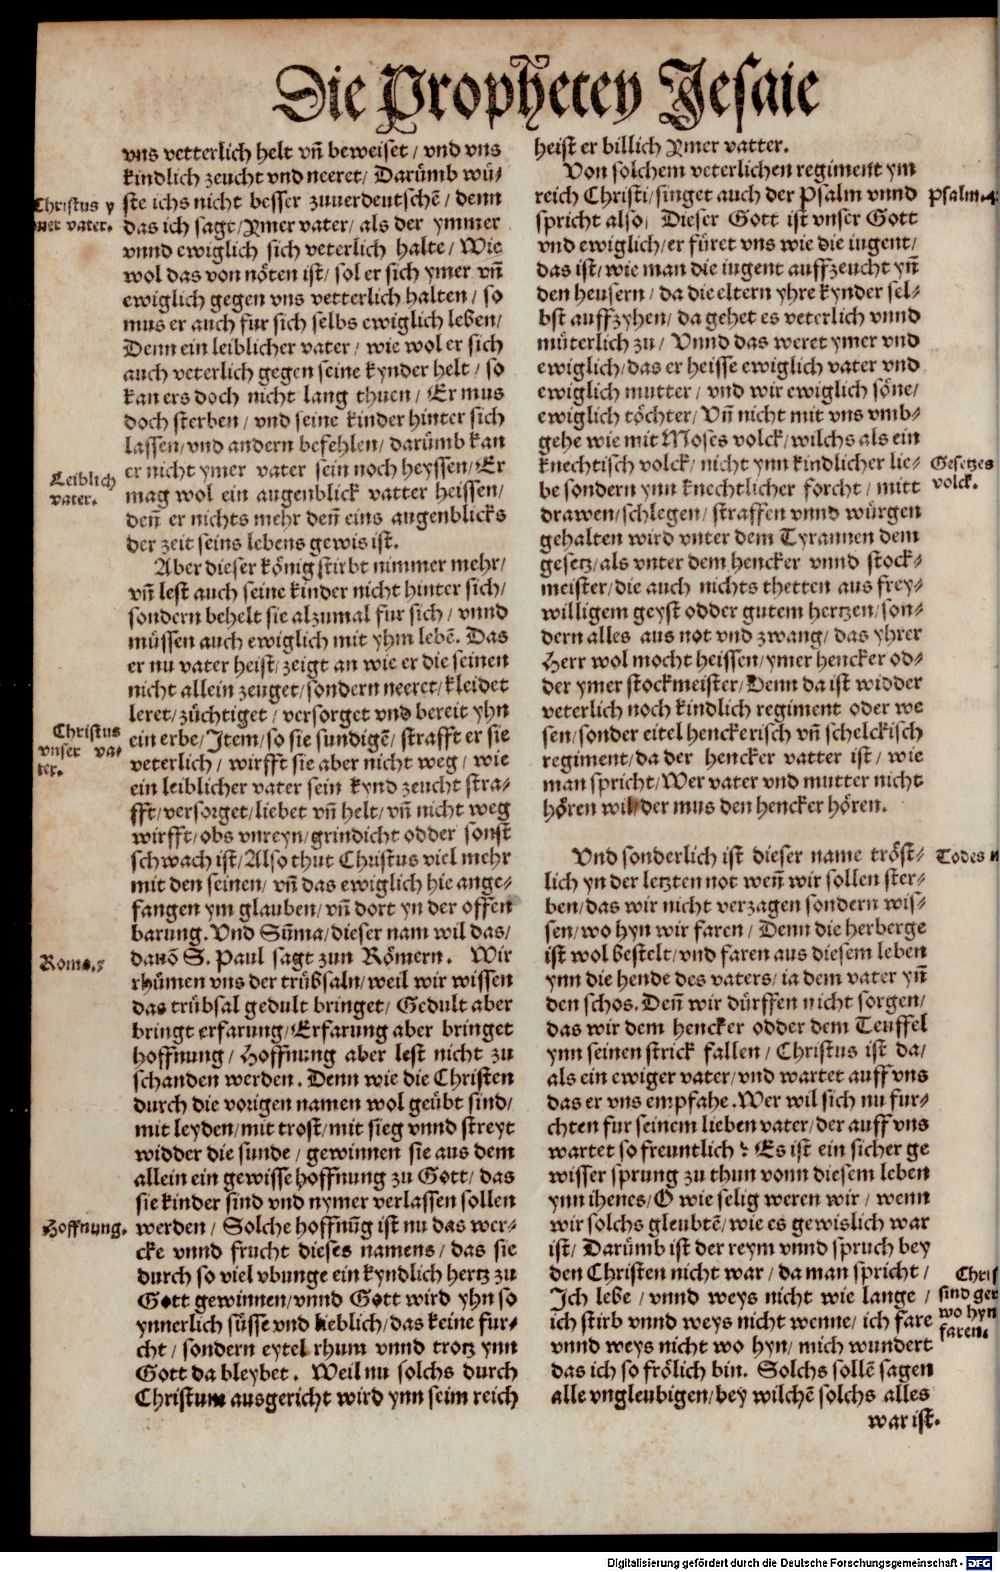 Die Prophetey Jesaie
vns vetterlich helt vñ beweiset / vnd vns
kindlich zeucht vnd neeret / Darümb wü⸗
ste ichs nicht besser zuuerdeutschẽ / denn
das ich sagt / Ymer vater / als der ymmer
vnnd ewiglich sich veterlich halte / Wie
wol das von nöten ist / sol er sich ymer vñ
ewiglich gegen vns vetterlich halten / so
mus er auch fur sich selbs ewiglich leben /
Denn ein leiblicher vater / wie wol er sich
auch veterlich gegen seine kynder helt / so
kan ers doch nicht lang thuen / Er mus
doch sterben / vnd seine kinder hinter sich
lassen / vnd andern befehlen / darümb kan
er nicht ymer vater sein noch heyssen / Er
mag wol ein augenblick vatter heissen /
deñ er nichts mehr deñ eins augenblicks
der zeit seins lebens gewis ist.
Aber dieser könig stirbt nimmer mehr /
vñ lest auch seine kinder nicht hinter sich /
sondern behelt sie alzumal fur sich / vnnd
müssen auch ewiglich mit yhm lebẽ. Das
er nu vater heist / zeigt an wie er die seinen
nicht allein zeuget / sondern neeret / kleidet
leret / züchtiget / versorget vnd bereit yhn
ein erbe / Item / so sie sundigẽ / strafft er sie
veterlich / wirfft sie aber nicht weg / wie
ein leiblicher vater sein kynd zeucht stra⸗
fft / versorget / liebet vñ helt / vñ nicht weg
wirfft / obs vnreyn / grindicht odder sonst
schwach ist / Also thut Christus viel mehr
mit den seinen / vñ das ewiglich hie ange⸗
fangen ym glauben / vñ dort yn der offen
barung. Vnd Sũma / dieser nam wil das /
dauõ S. Paul sagt zun Römern. Wir
rhümen vns der trübsaln / weil wir wissen
das trübsal gedult bringet / Gedult aber
bringt erfarung / Erfarung aber bringet
hoffnung / Hoffnung aber lest nicht zu
schanden werden. Denn wie die Christen
durch die vorigen namen wol geübt sind /
mit leyden / mit trost / mit sieg vnnd streyt
widder die sunde / gewinnen sie aus dem
allein ein gewisse hoffnung zu Gott / das
sie kinder sind vnd nymer verlassen sollen
werden / Solche hoffnũg ist nu das wer⸗
cke vnnd frucht dieses namens / das sie
durch so viel vbunge ein kyndlich hertz zu
Gott gewinnen / vnnd Gott wird yhn so
ynnerlich süsse vnd lieblich / das keine fur⸗
cht / sondern eytel rhum vnnd trotz ynn
Gott da bleybet. Weil nu solchs durch
Christum ausgericht wird ynn seim reich
Christus y
mer vater.
Leiblich
vater.
Christus
vnser va⸗
ter.
Roma.
Hoffnung.
heist er billich Ymer vatter.
Von solchem veterlichen regiment ym
reich Christi / singet auch der Psalm vnnd
spricht also / Dieser Gott ist vnser Gott
vnd ewiglich / er füret vns wie die iugent /
das ist / wie man die iugent auffzeucht yñ
den heusern / da die eltern yhre kynder sel⸗
bst auffzyhen / da gehet es veterlich vnnd
müterlich zu / Vnnd das weret ymer vnd
ewiglich / das er heisse ewiglich vater vnd
ewiglich mutter / vnd wir ewiglich söne /
ewiglich töchter / Vñ nicht mit vns vmb⸗
gehe wie mit Moses volck / wilchs als ein
knechtisch volck / nicht ynn kindlicher lie⸗
be sondern ynn knechtlicher forcht / mitt
drawen / schlegen / straffen vnnd würgen
gehalten wird vnter dem Tyrannen dem
gesetz / als vnter dem hencker vnnd stock⸗
meister / die auch nichts thetten aus frey⸗
willigem geyst odder gutem hertzen / son⸗
dern alles aus not vnd zwang / das yhrer
Herr wol mocht heissen / ymer hencker od⸗
der ymer stockmeister / Denn da ist widder
veterlich noch kindlich regiment oder we
sen / sonder eitel henckerisch vñ schelckisch
regiment / da der hencker vatter ist / wie
man spricht / Wer vater vnd mutter nicht
hören wil / der mus den hencker hören.
Vnd sonderlich ist dieser name tröst⸗
lich yn der letzten not weñ wir sollen ster⸗
ben / das wir nicht verzagen sondern wis⸗
sen / wo hyn wir faren / Denn die herberge
ist wol bestelt / vnd faren aus diesem leben
ynn die hende des vaters / ia dem vater yñ
den schos. Deñ wir dürffen nicht sorgen /
das wir dem hencker odder dem Teuffel
ynn seinen strick fallen / Christus ist da /
als ein ewiger vater / vnd wartet auff vns
das er vns empfahe. Wer wil sich nu fur⸗
chten fur seinem lieben vater / der auff vns
wartet so freuntlich? Es ist ein sicher ge
wisser sprung zu thun vonn diesem leben
ynn ihenes / O wie selig weren wir / wenn
wir solchs gleubtẽ / wie es gewislich war
ist / Darümb ist der reym vnnd spruch bey
den Christen nicht war / da man spricht /
Ich lebe / vnnd weys nicht wie lange /
ich stirb vnnd weys nicht wenne / ich fare
vnnd weys nicht wo hyn / mich wundert
das ich so frölich bin. Solchs sollẽ sagen
alle vngleubigen / bey wilchẽ solchs alles
war ist.
Psalm.4
Gesetzes
volck.
Todes
Chris
sind ger
wo hyn
faren.
Digitalisierung gefördert durch die Deutsche Forschungsgemeinschaft - DFG